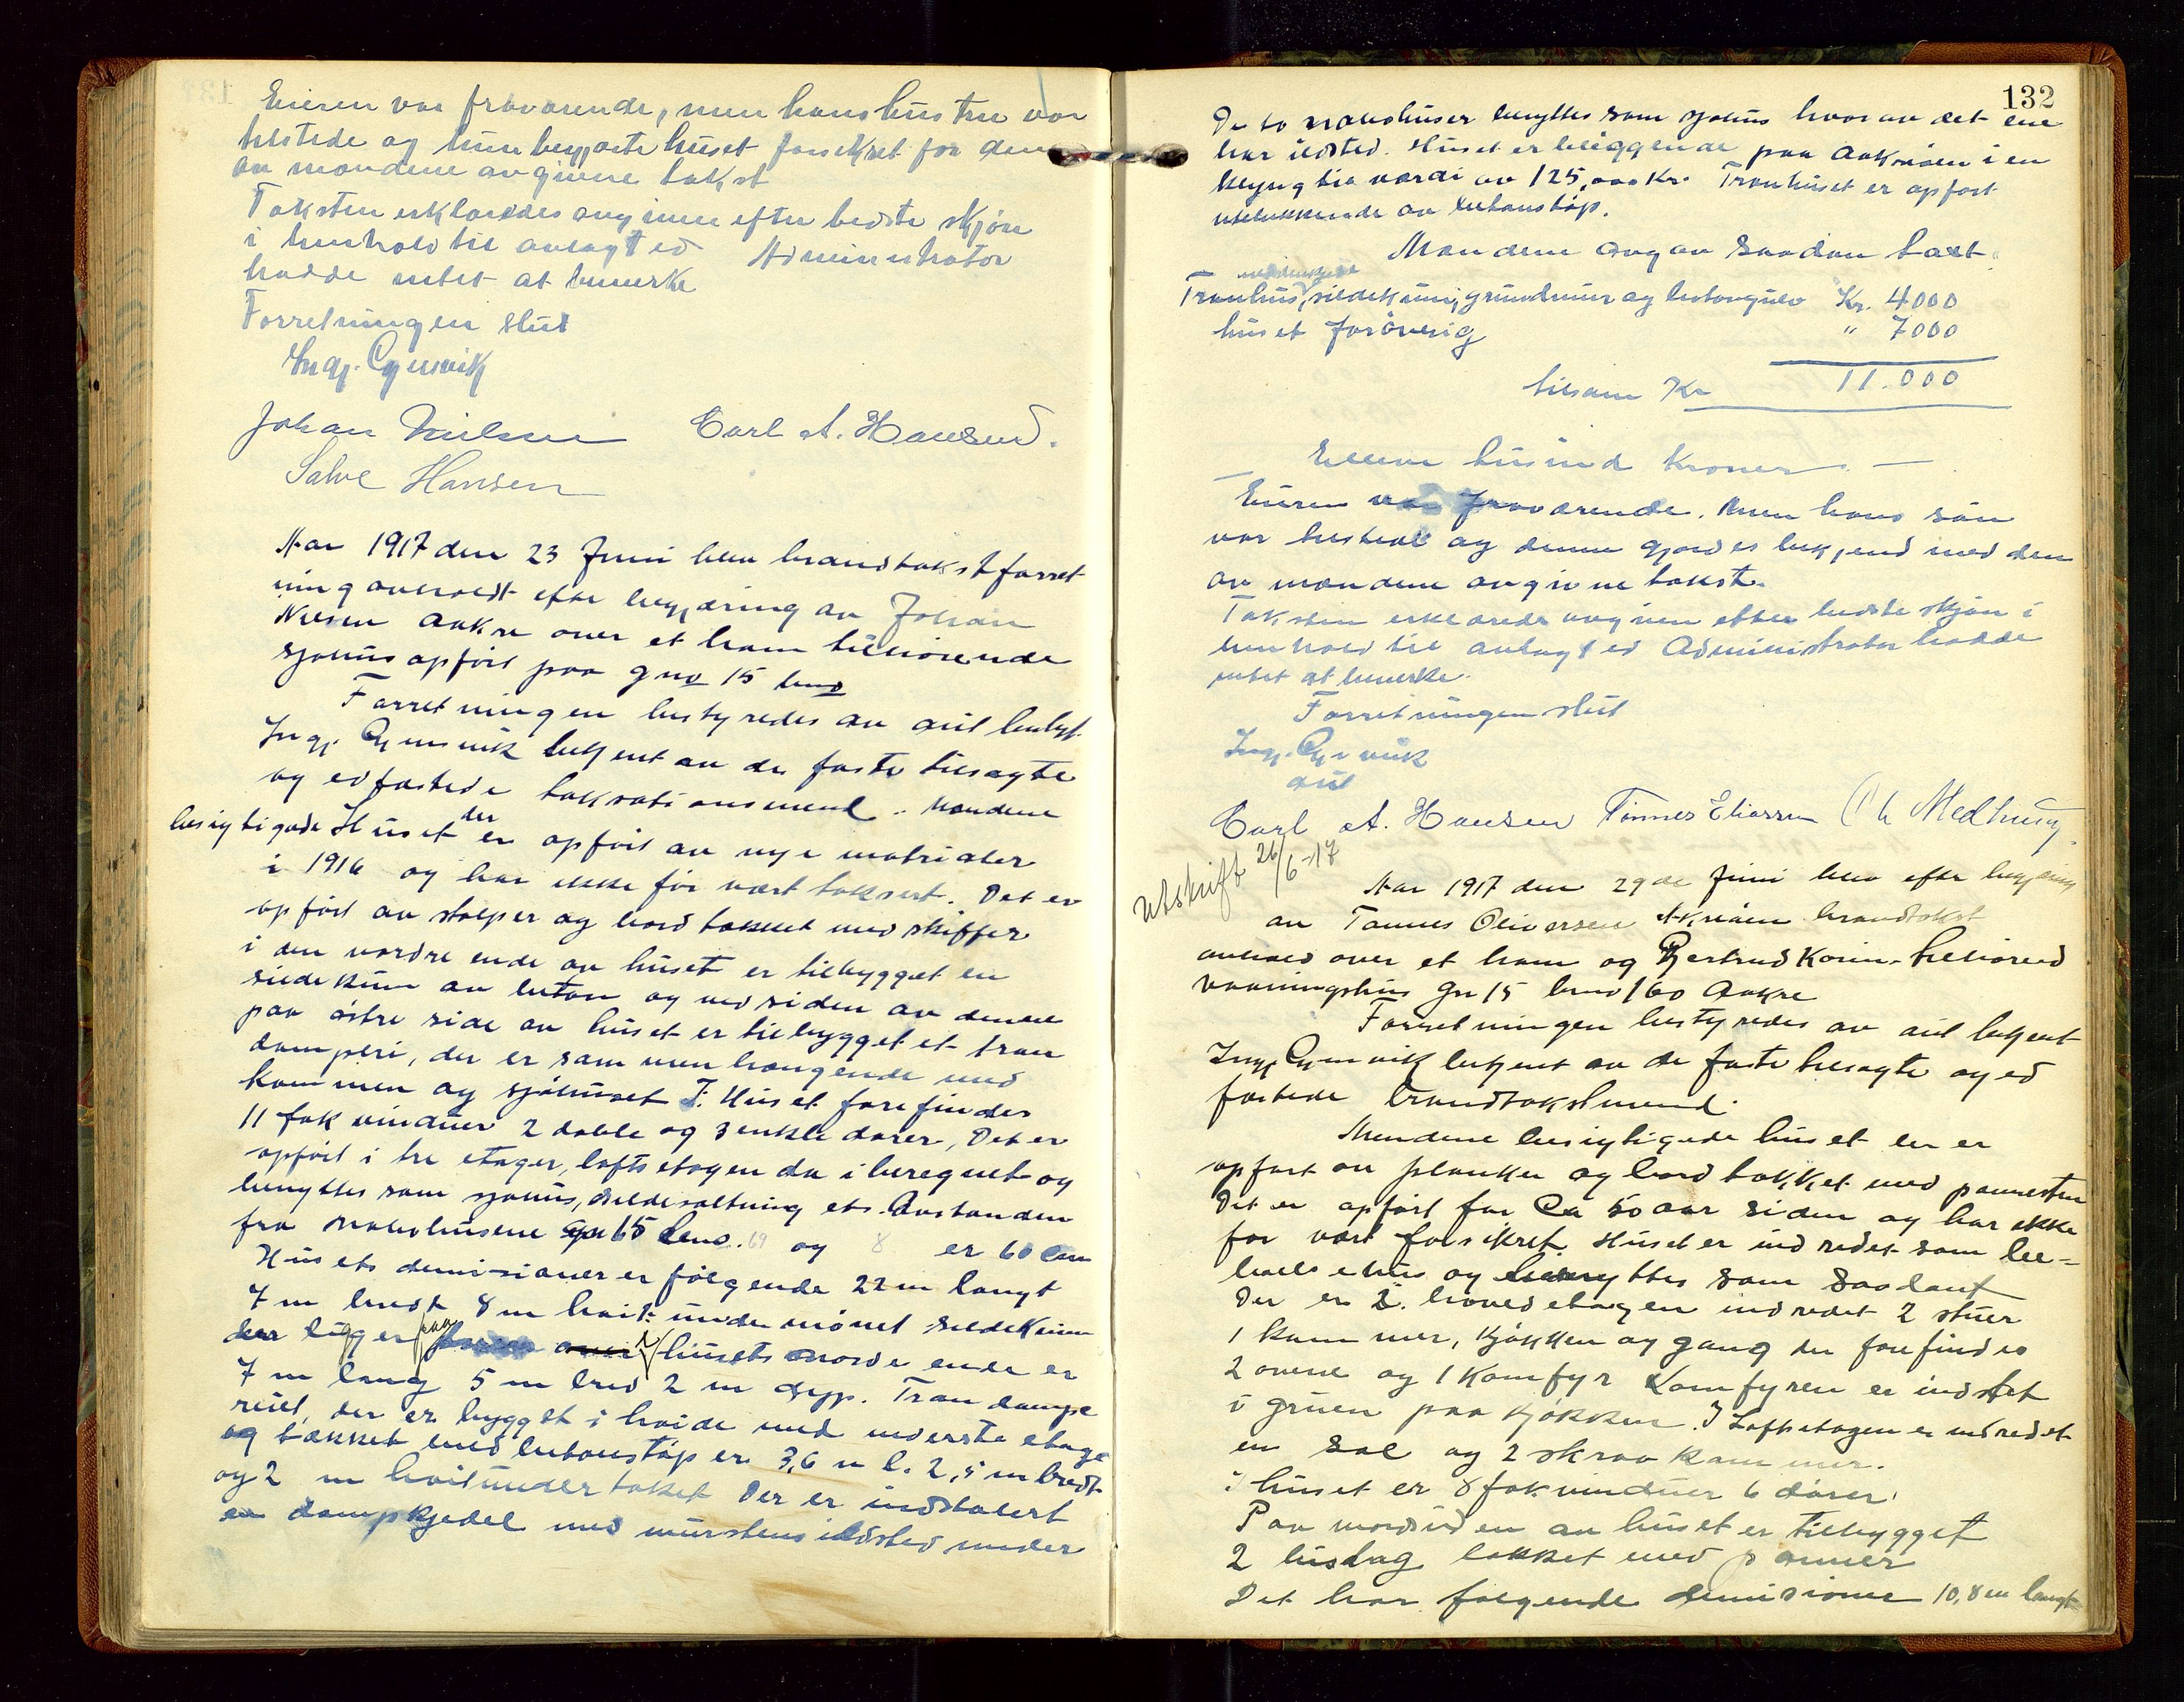 Eieren var fraværende, men hans hustru var
tilstede og hun begjærte huset forsikret for den
av mændene avgivne takst
Taksten erklæredes avgiven efter bedste skjøn
i henhold til avlagt ed Administrator
hadde intet at bemerke
Forretningen slut
Ingj. Gjervik
Johan Nilsen Carl A. Hansen.
Salve Hansen
Aar 1917 den 23 Juni blev brandtakstforret
ning avholdt efter begjæring av Johan
Nilsen Aakre over et ham tilhørende
sjøhus opført paa gno 15 bno
Forretningen bestyredes av aut lensbet.
Ingj. Gjervik bekjent av de faste tilsagte
og edfæstede taksationsmend. Mændene
besigtigede Huset der er opført av nye matrialer
i 1916 og har ikke før vært taksert. Det er
opført av stolper og bord tækket med skiffer
i den nordre ende av huset er tilbygget en
sildekum av beton og ved siden av denne
paa østre side av huset er tilbygget et tran
damperi, der er sammenhængende med
kummen og sjøhuset I. Huset forefindes
11 fak vinduer 2 doble og 3 enkle dører, Det er
opført i tre etager, loftsetagen da iberegnet og
benyttes som sjøhus, sildesaltning ets. Avstanden
fra nabohusene gn 15 bno. 69 og 8 er 60 cm
Husets demisioner er følgende 22 m langt
7 m bredt 8 m høit under mønet sildekum
der ligger paa husets nordre ende er
7 m lang 5 m bred 2 m dyp. Trandampe
riet, der er bygget i høide med nederste etage
og tækket med betonstøp er 3,6 m l. 2,5 m bredt
og 2 m høit under taket Der er indstalert
en dampkjedel med murstens ildsted under
132
De to nabohuser benyttes som sjøhus hvorav det ene
har ildsted. Huset er beliggende paa Aakrøen i en
klyng til værdi av 125,000 Kr. Tranhuset er opført
utelukkende av betonstøp.
Mændene avgav saadan taxt.
Tranhus, sildekum, grundmur og betongulv Kr. 4000
huset forøvrig " 7000
tilsam Kr 11.000
Elleve tusind kroner. —
Eieren var fraværende. Men hans søn
var tilstede og denne gjordes bekjend med den
av mændene avgivne takst.
Taksten erklæredes avgiven efter bedste skjøn i
henhold til avlagt ed Administrator hadde
intet at bemerke.
Forretningen slut
Ingj. Gjervik
aut
Carl A. Hansen Tønnes Eliassen Ch Medhaug.
Utskrift 26/6-17
Aar 1917 den 29de Juni blev efter begjæring
av Tønnes Oliversen Akrøen brandtakst
avhold over et ham og Gjertrud Korin. tilhørend
vaaningshus Gn 15 bno 160 Aakre
Forretningen bestyredes av aut bekjent
Ingj Gjervik bekjent av de faste tilsagte og ed
fæstede brandtakstmend.
Mændene besigtigede huset der er
opført av planker og bord tækket med pannesten
Det er opført for Ca 50 aar siden og har ikke
før vært forsikret. Huset er indredet som be-
boelseshus og benyttes som saadant
Der er I. hovedetagen indredet 2 stuer
1 kammer, kjøkken og gang der forefindes
2 ovene og 1 Komfyr Komfyren er indsat
i gruen paa kjøkken. I Loftsetagen er indredet
en sal og 2 skraakammer.
I huset er 8 fak vinduer 6 dører.
Paa nordsiden av huset er tilbygget
2 bislag tækket med panner
Det har følgende demisioner 10,8 m langt